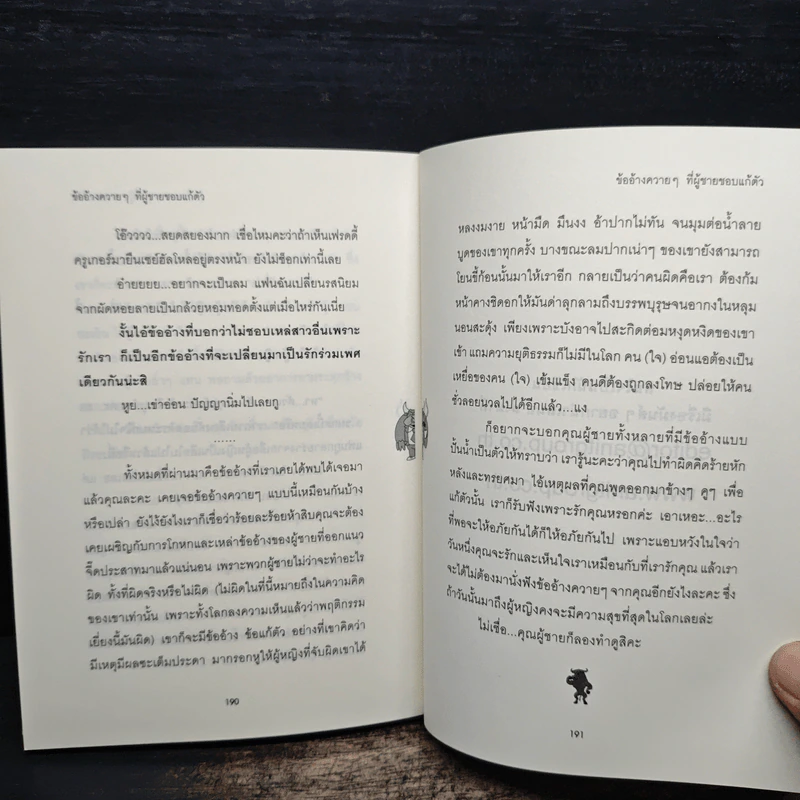 ข้ออ้างควายๆ ที่ผู้ชายชอบแก้ตัว
โอ๊วววว...สยดสยองมาก เชื่อไหมคะว่าถ้าเห็นเฟรดดี้
ครูเกอร์มายืนเซย์ฮัลโหลอยู่ตรงหน้า ยังไม่ช็อกเท่านี้เลย
อ๋ายยยย...อยากจะเป็นลม แฟนฉันเปลี่ยนรสนิยม
จากผัดหอยลายเป็นกล้วยหอมทอดตั้งแต่เมื่อไหร่กันเนี่ย
งั้นไอ้ข้ออ้างที่บอกว่าไม่ชอบเหล่สาวอื่นเพราะ
รักเรา ก็เป็นอีกข้ออ้างที่จะเปลี่ยนมาเป็นรักร่วมเพศ
เดียวกันน่ะสิ
หูย...เข่าอ่อน ปัญญานิ่มไปเลยกู
......
ทั้งหมดที่ผ่านมาคือข้ออ้างที่เราเคยได้พบได้เจอมา
แล้วคุณล่ะคะ เคยเจอข้ออ้างควายๆ แบบนี้เหมือนกันบ้าง
หรือเปล่า ยังไงยังไงเราก็เชื่อว่าร้อยละร้อยห้าสิบคุณจะต้อง
เคยเผชิญกับการโกหกและเหล่าข้ออ้างของผู้ชายที่ออกแนว
จี๊ดประสาทมาแล้วแน่นอน เพราะพวกผู้ชายไม่ว่าจะทำอะไร
ผิด ทั้งที่ผิดจริงหรือไม่ผิด (ไม่ผิดในที่นี้หมายถึงในความคิด
ของเขาเท่านั้น เพราะทั้งโลกลงความเห็นแล้วว่าพฤติกรรม
เยี่ยงนี้มันผิด) เขาก็จะมีข้ออ้าง ข้อแก้ตัว อย่างที่เขาคิดว่า
มีเหตุมีผลซะเต็มประดา มากรอกหูให้ผู้หญิงที่จับผิดเขาได้
190
ข้ออ้างควายๆ ที่ผู้ชายชอบแก้ตัว
หลงงมงาย หน้ามืด มึนงง อ้าปากไม่ทัน จนมุมต่อน้ำลาย
บูดของเขาทุกครั้ง บางขณะลมปากเน่าๆ ของเขายังสามารถ
โยนขี้ก้อนนั้นมาให้เราอีก กลายเป็นว่าคนผิดคือเรา ต้องก้ม
หน้าคางชิดอกให้มันด่าลุกลามถึงบรรพบุรุษจนอากงในหลุม
นอนสะดุ้ง เพียงเพราะบังอาจไปสะกิดต่อมหงุดหงิดของเขา
เข้า แถมความยุติธรรมก็ไม่มีในโลก คน (ใจ) อ่อนแอต้องเป็น
เหยื่อของคน (ใจ) เข้มแข็ง คนดีต้องถูกลงโทษ ปล่อยให้คน
ชั่วลอยนวลไปได้อีกแล้ว...แง
ก็อยากจะบอกคุณผู้ชายทั้งหลายที่มีข้ออ้างแบบ
ปั้นน้ำเป็นตัวให้ทราบว่า เรารู้นะคะว่าคุณไปทำผิดคิดร้ายหัก
หลังและทรยศมา ไอ้เหตุผลที่คุณพูดออกมาข้างๆ คูๆ เพื่อ
แก้ตัวนั้น เราก็รับฟังเพราะรักคุณหรอกค่ะ เอาเหอะ...อะไร
ที่พอจะให้อภัยกันได้ก็ให้อภัยกันไป เพราะแอบหวังในใจว่า
วันหนึ่งคุณจะรักและเห็นใจเราเหมือนกับที่เรารักคุณ แล้วเรา
จะได้ไม่ต้องมานั่งฟังข้ออ้างควายๆ จากคุณอีกยังไงละคะ ซึ่ง
ถ้าวันนั้นมาถึงผู้หญิงคงจะมีความสุขที่สุดในโลกเลยล่ะ
ไม่เชื่อ...คุณผู้ชายก็ลองทำดูสิคะ
191